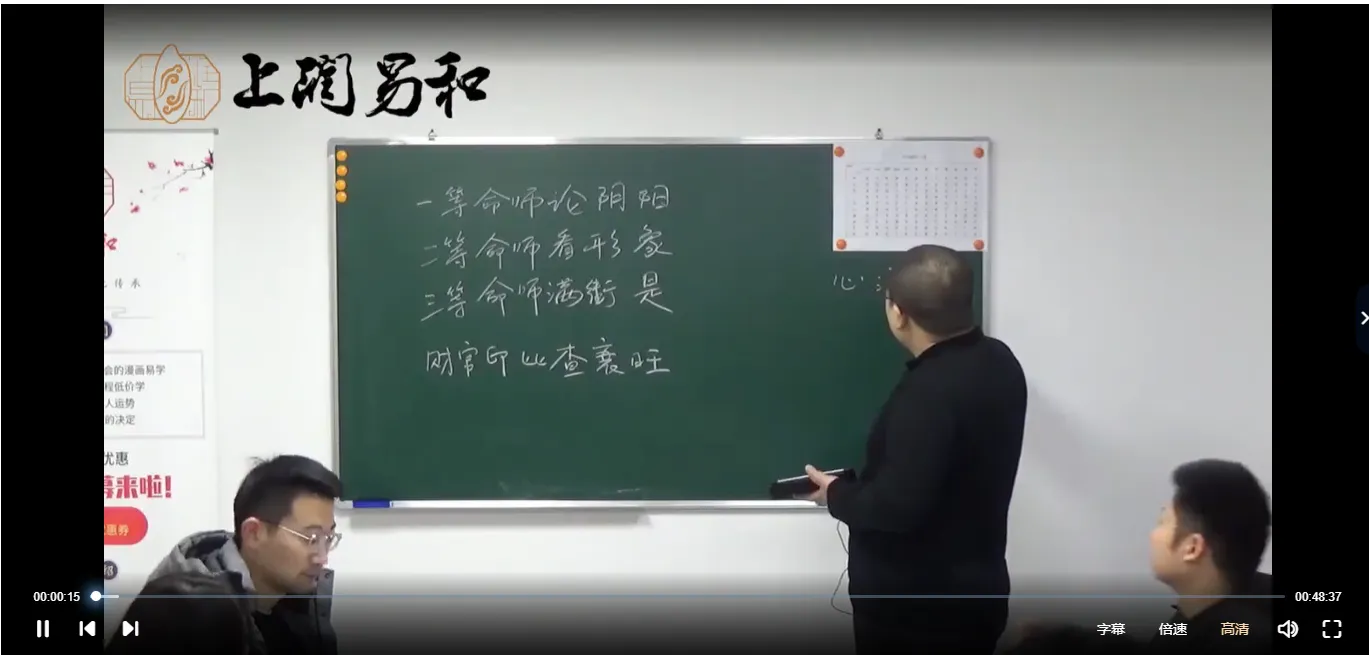 上润易和
一等命师论阴阳
二等命师看形象
三等命师满街是
财官印比查衰旺
心
会的漫画易学
程低价学
人运势
的决定
优惠
幕来啦!
惠券
00:00:15
00:48:37
字幕
倍速
高清